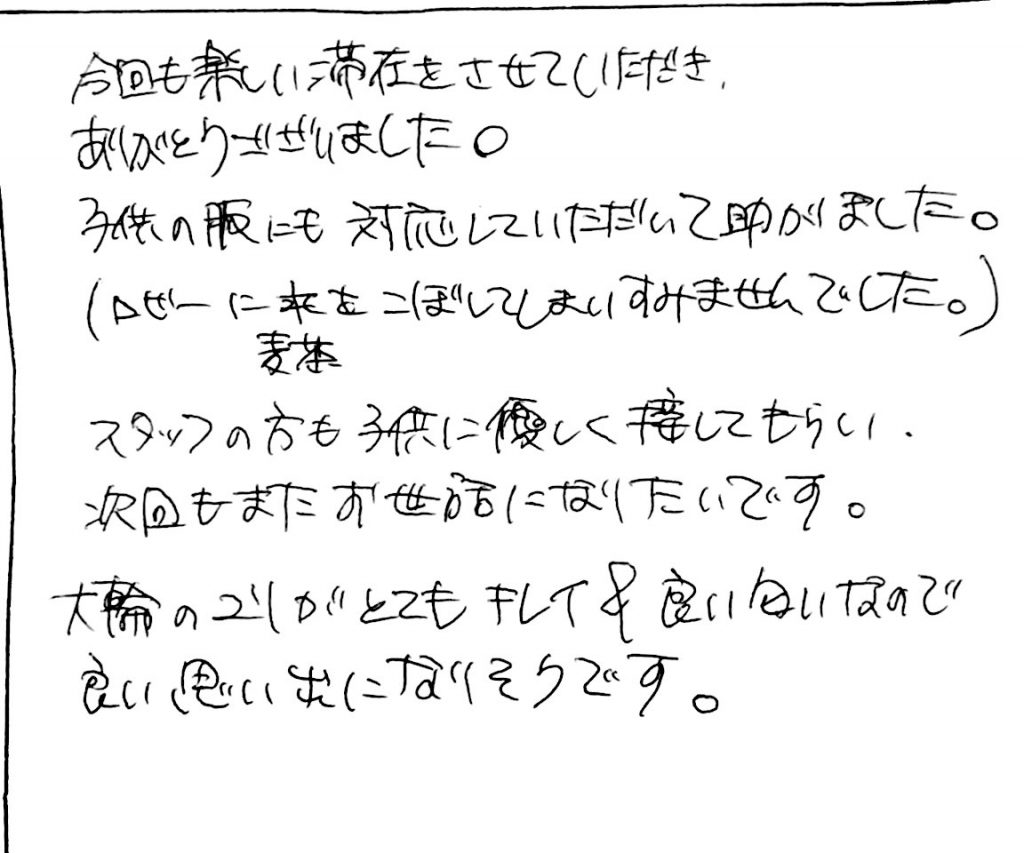 今回も楽しい滞在をさせていただき、
ありがとうございました。
子供の服にも対応していただいて助かりました。
(ロビーに水をこぼしてしまいすみませんでした。)
麦茶
スタッフの方も子供に優しく接してもらい、
次回もまたお世話になりたいです。
大輪のユリがとてもキレイ&良い匂いなので
良い思い出になりそうです。